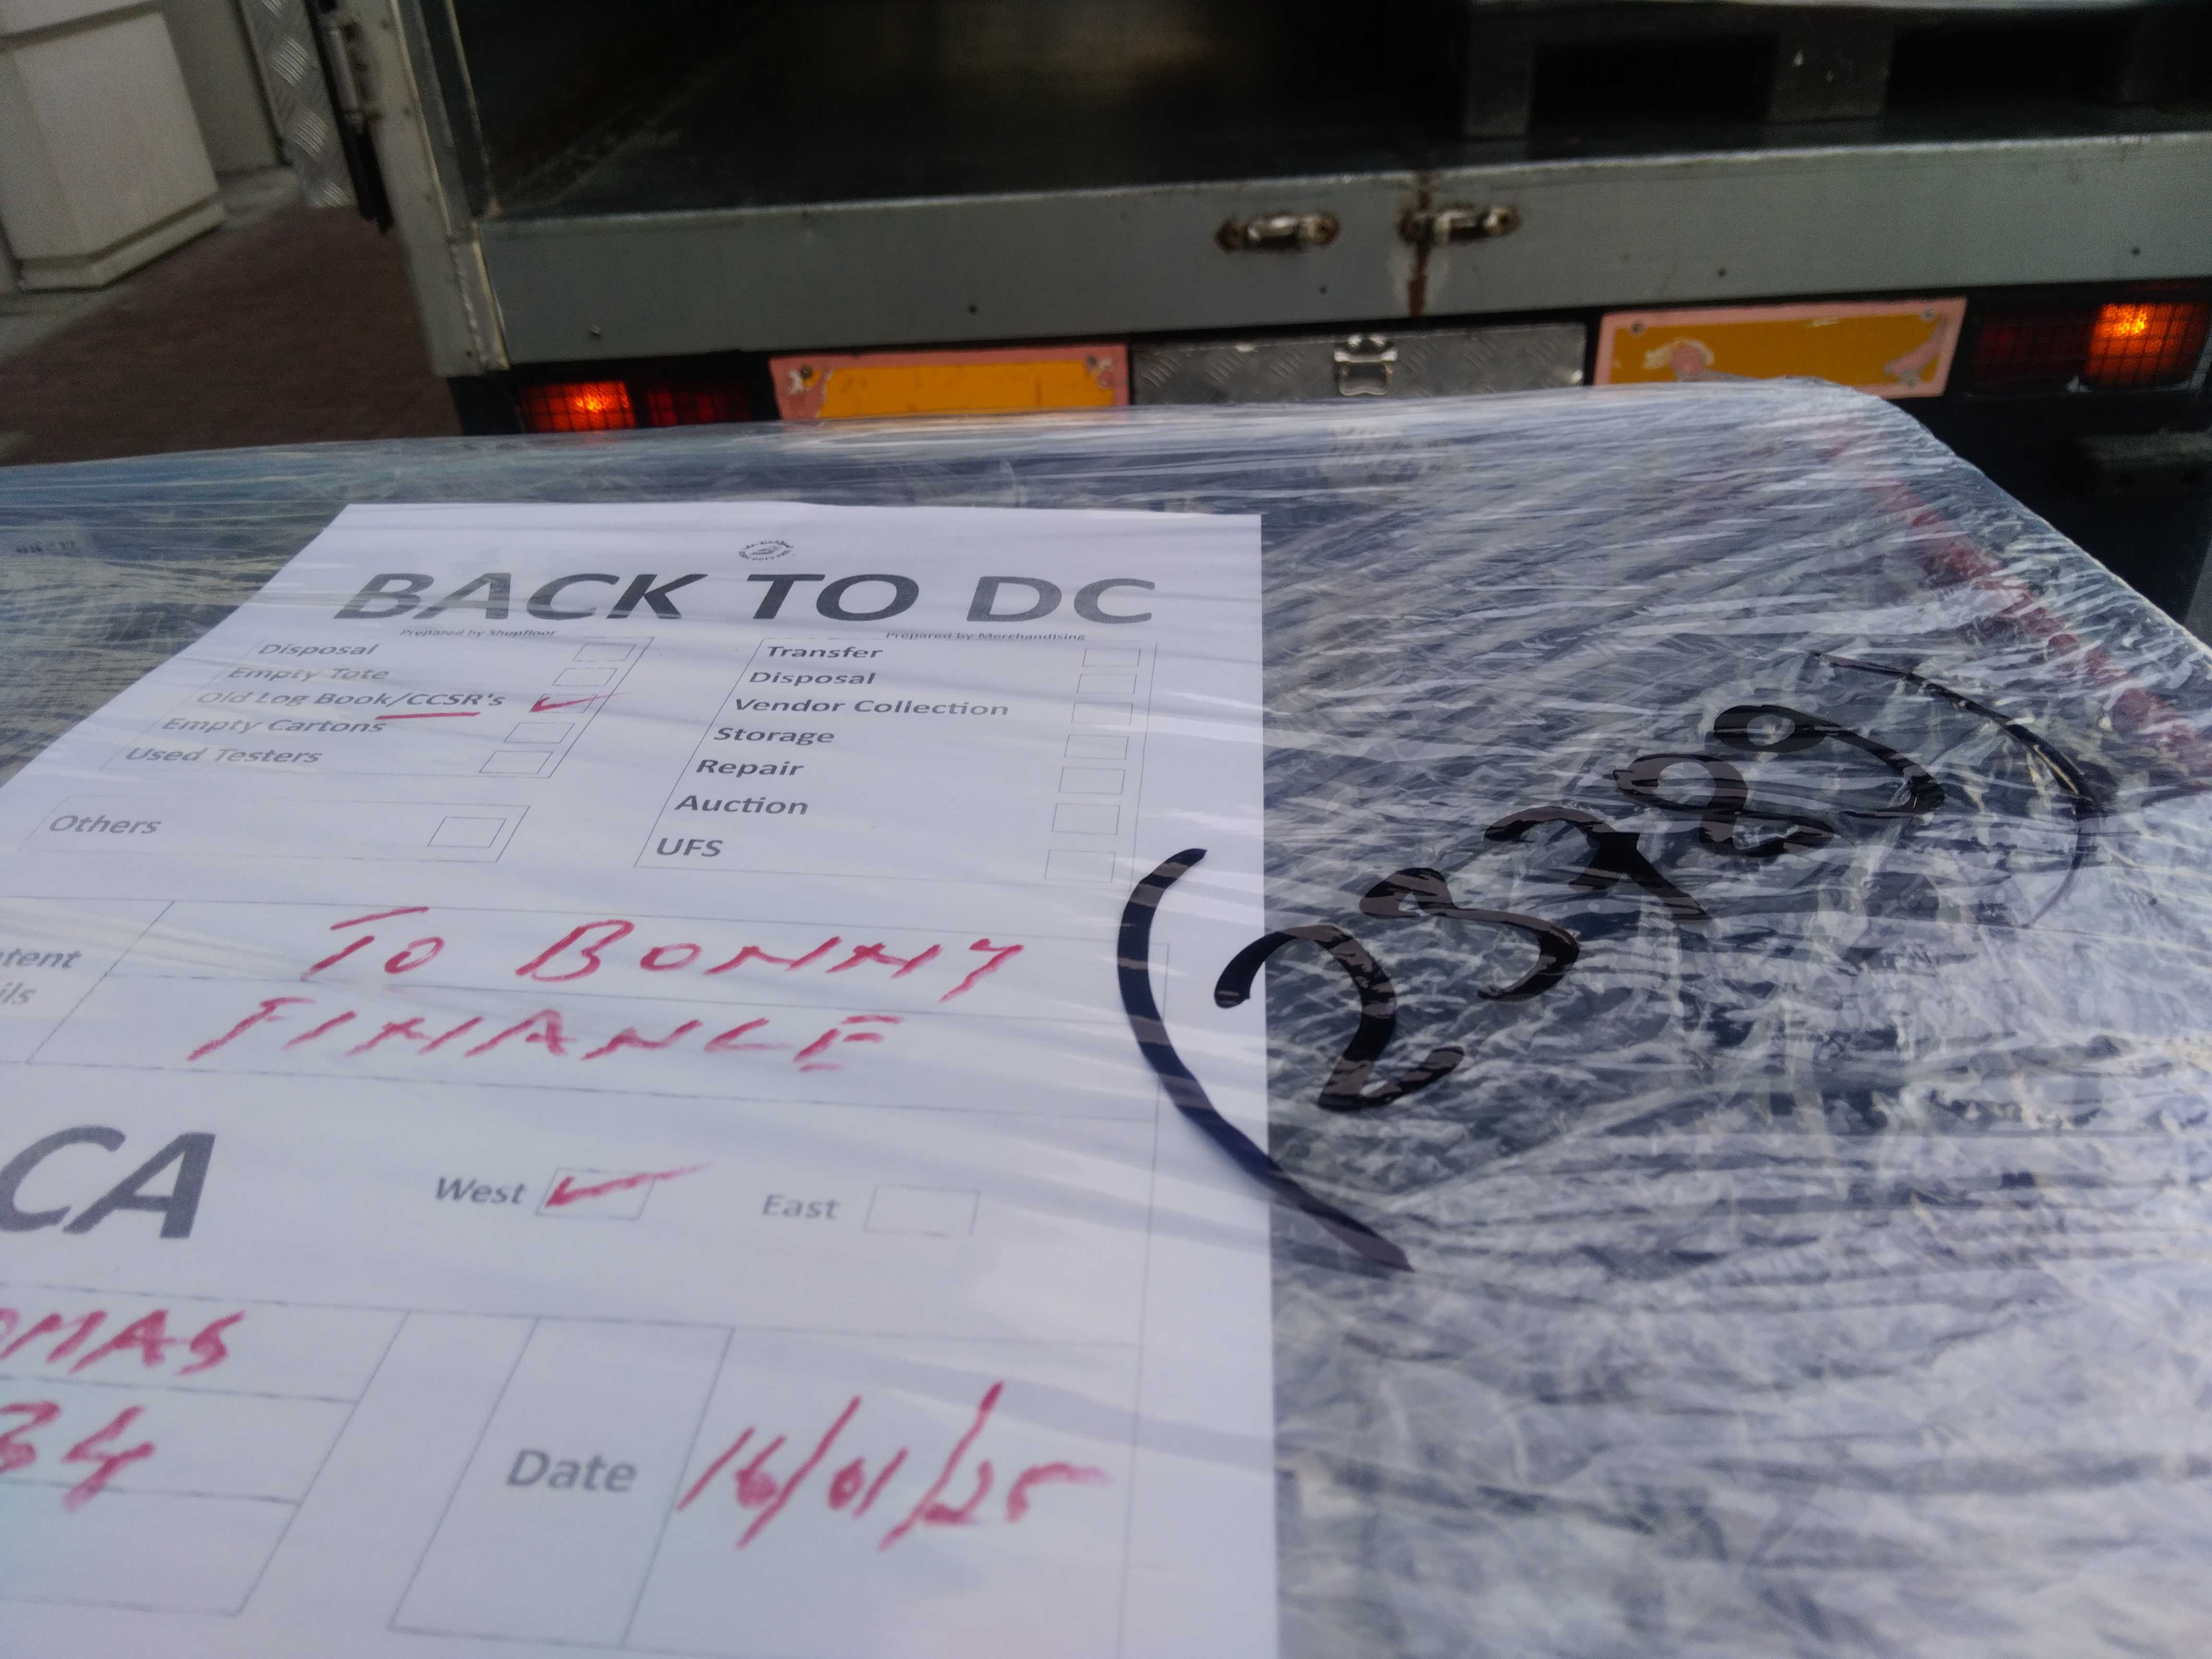 BACK TO DC
Prepared by Shopfloor
Disposal
Empty Tote
Old Log Book/CCSR's
Empty Cartons
Used Testers
Others
Prepared by Merchandising
Transfer
Disposal
Vendor Collection
Storage
Repair
Auction
UFS
TO BONNY
FINANCE
CA
West
East
OMAS
34
Date
16/01/25